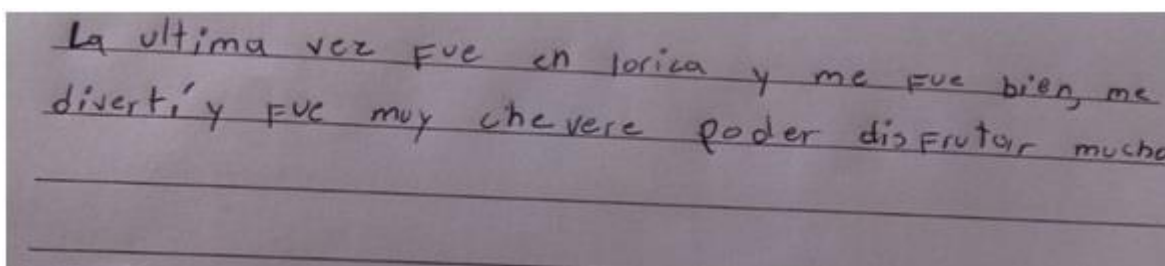 La ultima vez Fue en lorica y me Fue bien, me
divertí y Fue muy chevere poder disFrutar mucho